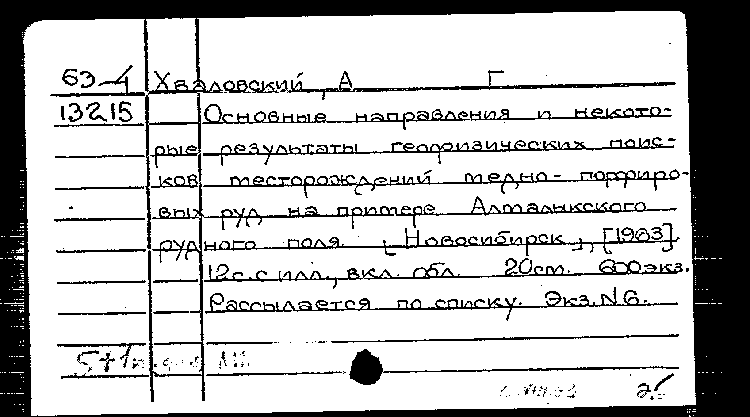 63-4 Хваловский, А Г
13215 Основные направления и некото-
рые результаты геофизических поис-
ков месторождений медно-порфиро-
вых руд на примере Алмалыкского
рудного поля. [Новосибирск], [1963].
12с. с илл., вкл. обл. 20см. 600экз.
Рассылается по списку. Экз. N6.
5+1